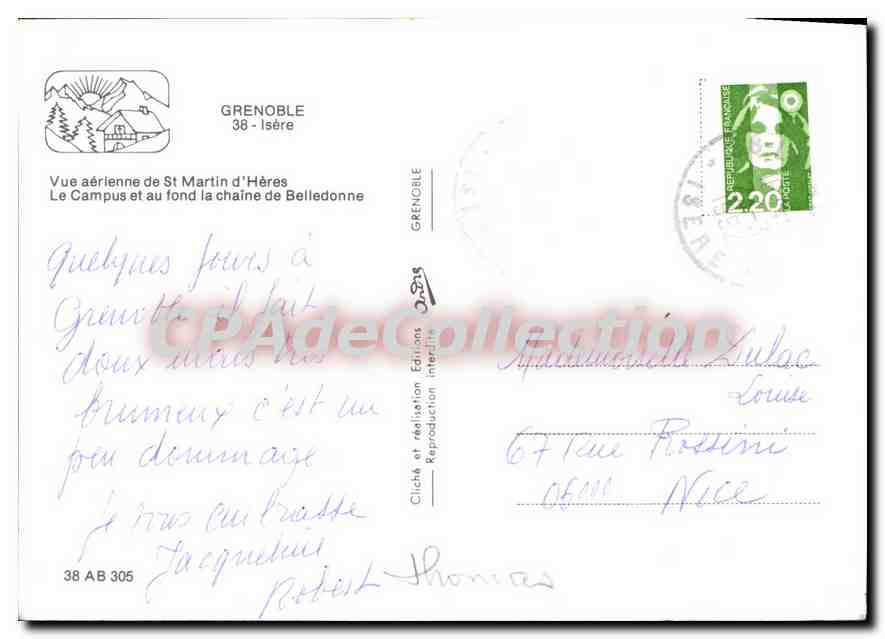 GRENOBLE
38 - Isère
Vue aérienne de St Martin d'Hères
Le Campus et au fond la chaîne de Belledonne
Quelques jours à
Grenoble il fait
doux mais très
brumeux c'est un
peu dommage
Je vous embrasse
Jacqueline
Robert Thomas
38 AB 305
GRENOBLE
André
Cliché et réalisation Editions
Reproduction interdite
REPUBLIQUE FRANÇAISE
2.20
LA POSTE
ISERE
Mademoiselle Dulac
Louise
67 Rue Rossini
06000 Nice
CPAdeCollection